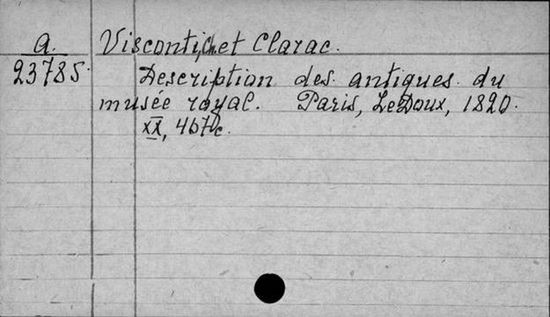 A.
23785.
Visconti, et Clarac.
Description des antiques du
musée royal. Paris, LeDoux, 1820.
XX, 467 c.